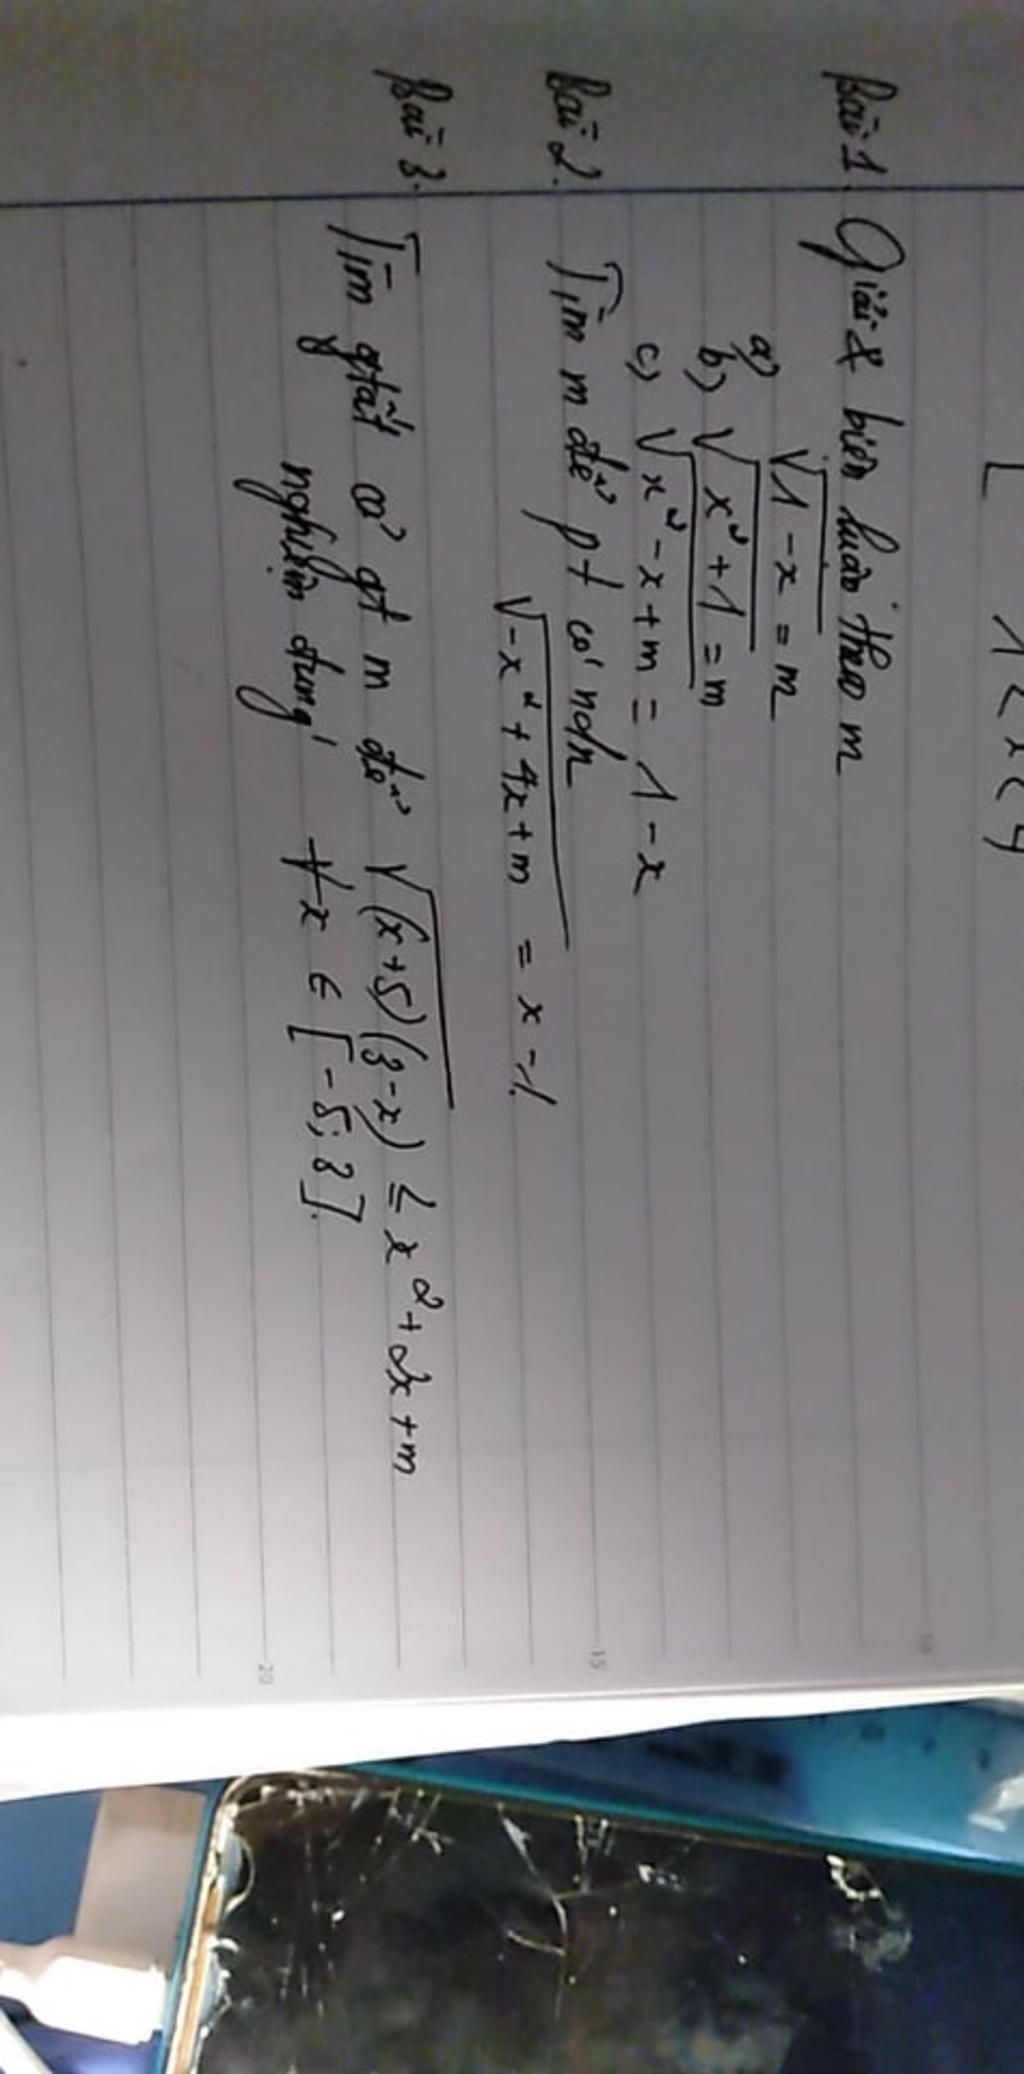 [ 1 < x < 4
Bài 1. Giải & biện luận theo m
a) √1-x = m
b) √x²+1 = m
c) √x²-x+m = 1-x
Bài 2. Tìm m để pt có ndn
√-x²+4x+m = x-1.
Bài 3. Tìm tất cả gt m để √(x+5)(3-x) ≤ x²+2x+m
nghiệm đúng ∀x ∈ [-5; 3].
10
15
20